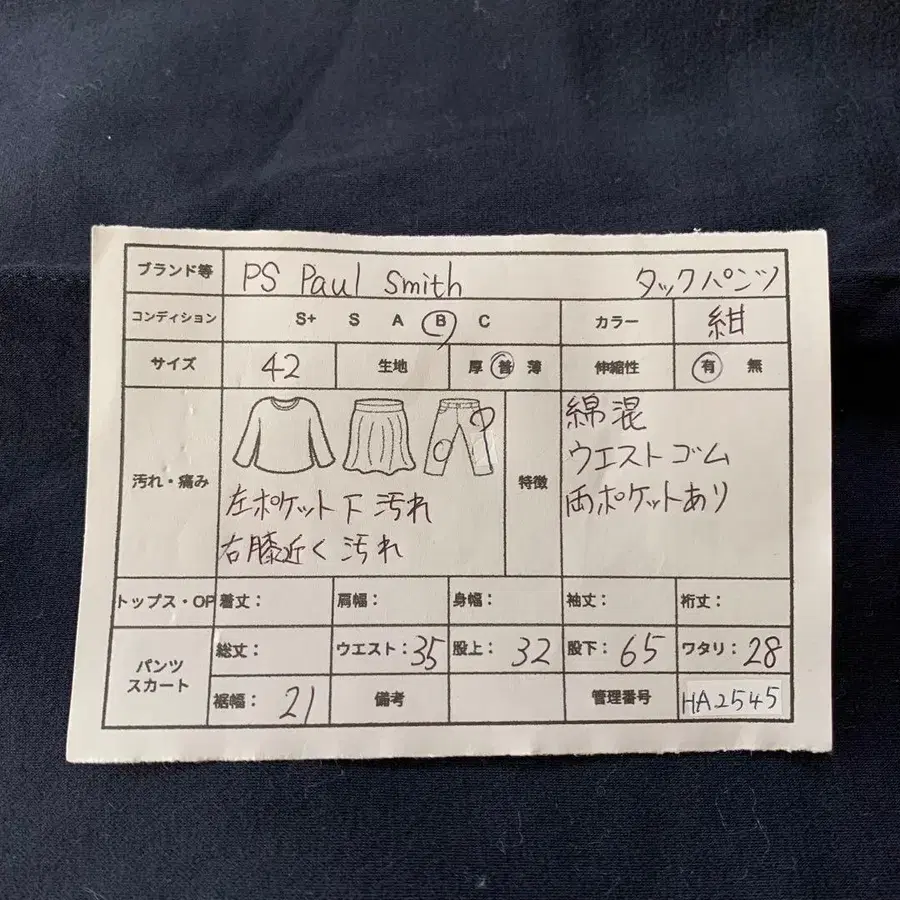 ブランド等 PS Paul Smith タックパンツ
コンディション S+ S A B C カラー 紺
サイズ 42 生地 厚 普 薄 伸縮性 有 無
汚れ・痛み 左ポケット下汚れ
右膝近く汚れ
特徴 綿混
ウエストゴム
両ポケットあり
トップス・OP 着丈: 肩幅: 身幅: 袖丈: 裄丈:
パンツ
スカート
総丈: ウエスト:35 股上: 32 股下: 65 ワタリ: 28
裾幅: 21 備考 管理番号 HA2545